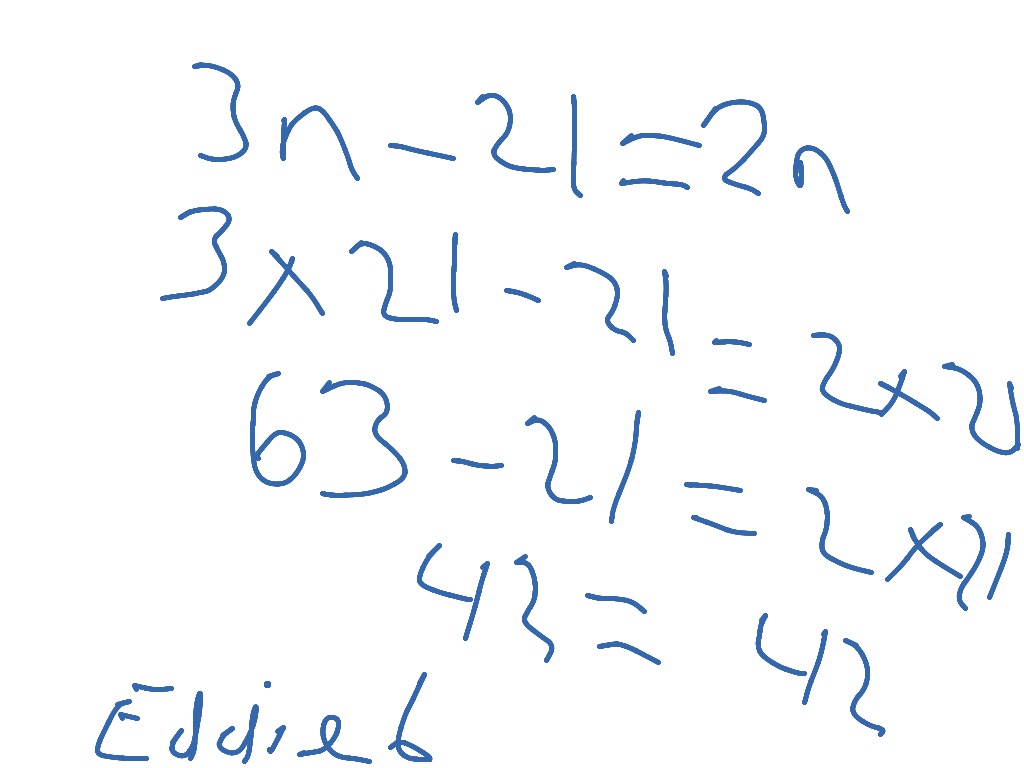 3n - 21 = 2n
3 × 21 - 21 = 2 × 21
63 - 21 = 2 × 21
42 = 42
Eddie 6